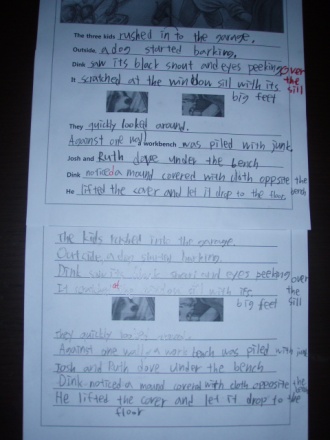 The three kids rushed in to the garage.
Outside, a dog started barking.
Dink saw its black snout and eyes peeking over the sill
It scratched at the window sill with its big feet
They quickly looked around.
Against one wall workbench was piled with junk.
Josh and Ruth dove under the bench
Dink noticed a mound covered with cloth opposite the bench
He lifted the cover and let it drop to the floor.
The kids rushed into the garage.
Outside, a dog started barking.
Dink and eyes peeking over the sill
It at window sill with its big feet
They around.
Against one wall a work beach was piled with junk
Josh and Ruth dove under the bench
Dink noticed a mound covered with cloth opposite the bench
He lifted the cover and let it drop to the floor